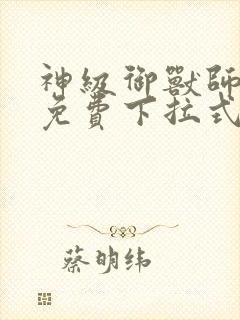 神級御獸師
免費下拉式
蔡明纬